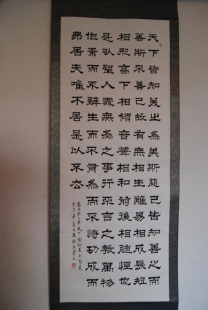 天下皆知美之為美斯惡已皆知善之為
善斯不善已故有無相生難易相成長短
相形高下相傾音聲相和前後相隨恆也
是以聖人處無為之事行不言之教萬物
作焉而不辭生而不有為而不恃功成而
弗居夫唯不居是以不去